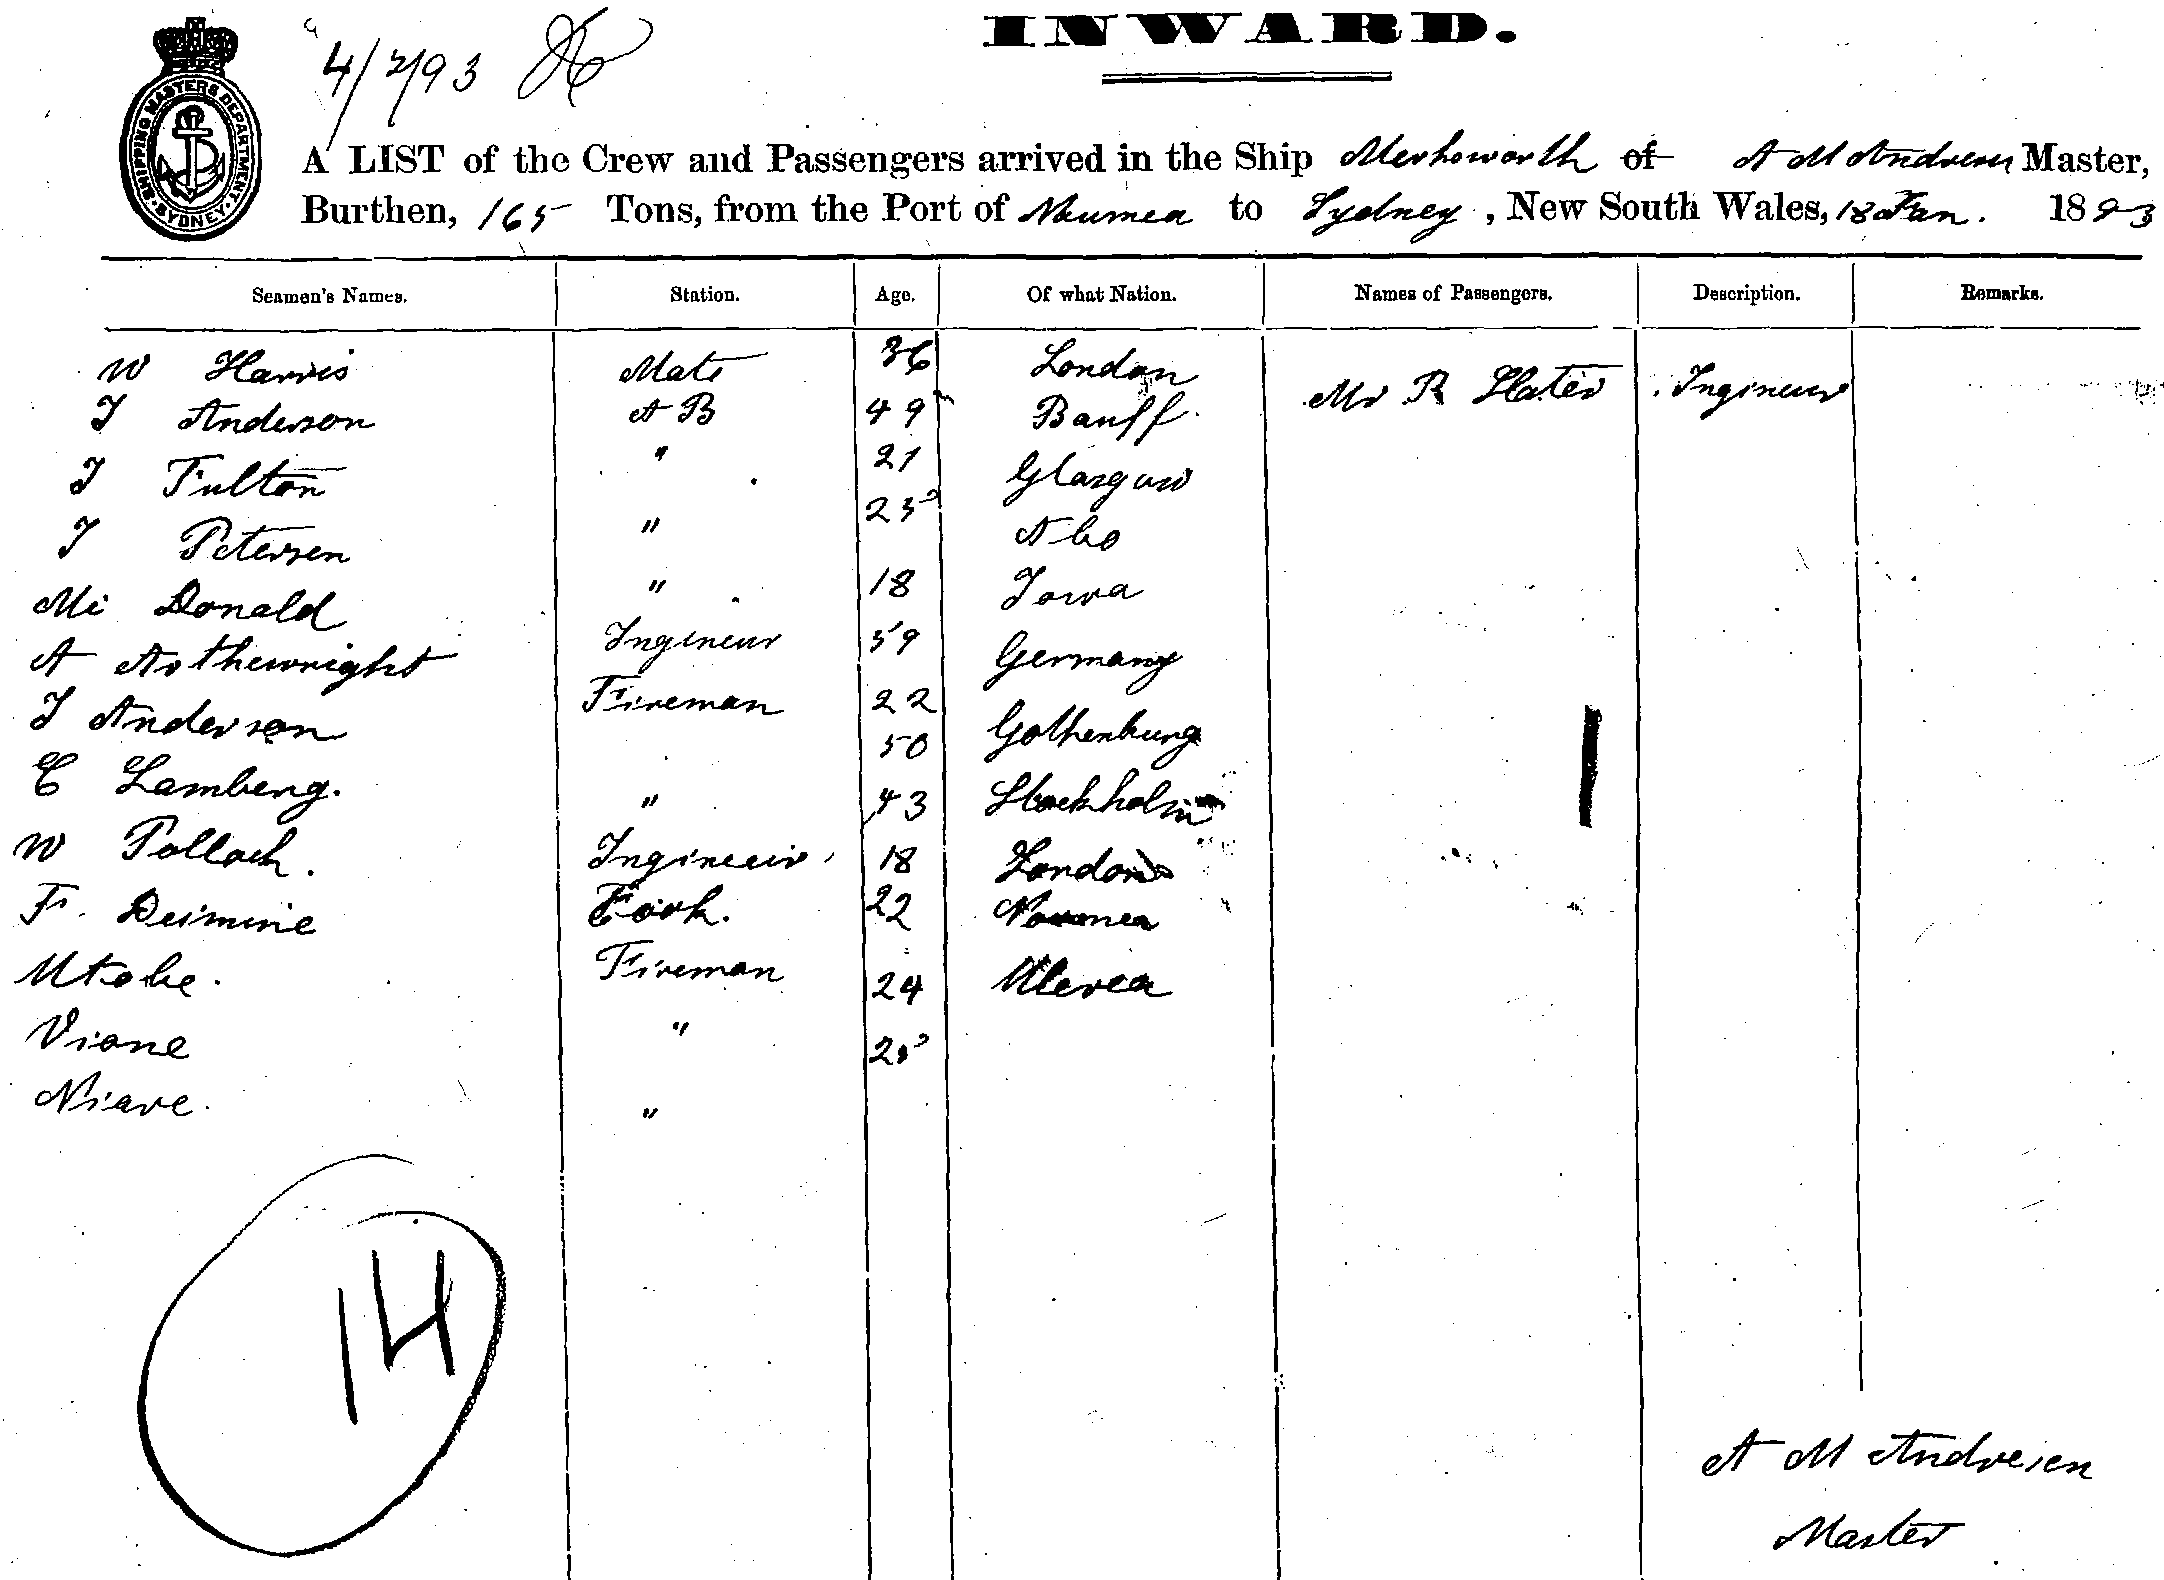 INWARD.
4/2/93
SHIPPING MASTERS DEPARTMENT SYDNEY
A LIST of the Crew and Passengers arrived in the Ship Merksworth of A M Andresen Master,
Burthen, 165 Tons, from the Port of Noumea to Sydney, New South Wales, 18 Jan. 1893
Seamen's Names. Station. Age. Of what Nation. Names of Passengers. Description. Remarks.
W Harris Mate 36 London Mr R Slater Ingineur
J Anderson A B 49 Banff
J Fulton " 21 Glasgow
J Petersen " 25 Abo
Mc Donald " 18 Iowa
A Arthewright Ingineur 59 Germany
J Anderson Fireman 22 Gothenburg
C Lamberg. " 50 Stockholm
W Pollock. Ingineur 43 London
F. Deimine Cook. 18 Noumea
Mtobe. Fireman 22
Viane " 24
Niare. "
14
A M Andresen
Master